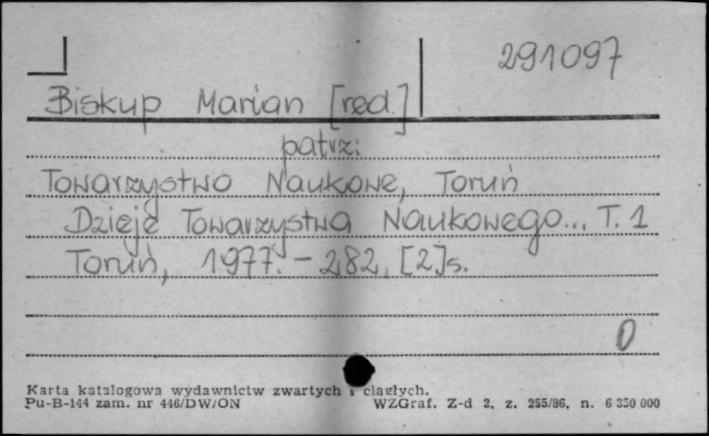 291097
Biskup Marian [red.]
patrz:
Towarzystwo Naukowe, Toruń
Dzieje Towarzystwa Naukowego... T. 1
Toruń, 1977. - 282, [2]s.
0
Karta katalogowa wydawnictw zwartych i ciągłych.
Pu-B-144 zam. nr 446/DW/ON WZGraf. Z-d 2, z. 255/86, n. 6 350 000